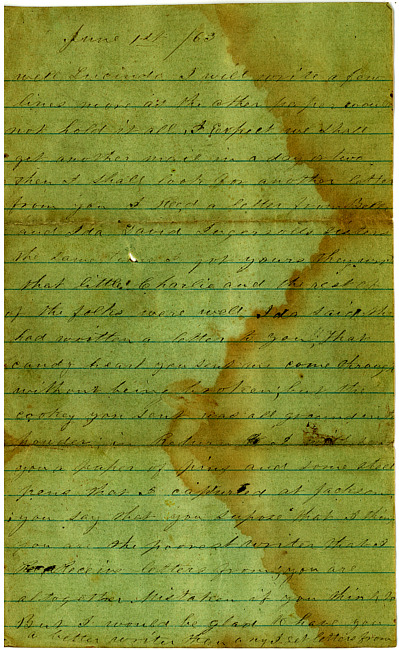 June 1st /63
well Lucinda I will write a few
lines more as the other paper would
not hold it all. I expect we shall
get another mail in a day or two
then I shall look for another letter
from you I received a letter from
and Ida David Ingersolls sister
the same time I got yours they
that little Charlie and the rest of
the folks were well Ida said
had written a letter to you that
candy heart you sent me come through
without being broken, but the
cookey you sent was all ground
powder in Return I will send
you a paper of pins and some steel
pens that I captured at Jackson
you say that you supose that I think
you are the poorest writer that I
Receive letters from, you are
altogether Mistaken if you think so
But I would be glad to have you
a better writer then any I get letters from